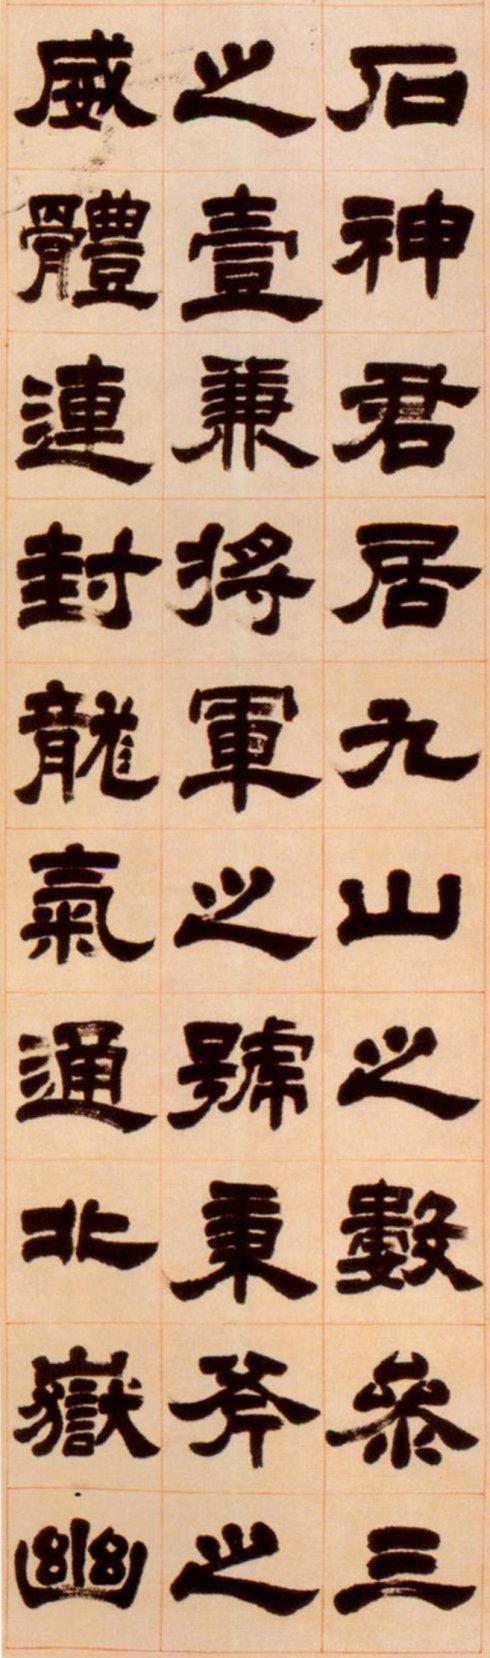 石神君居九山之數參三
之壹兼將軍之號秉斧之
威體連封龍氣通北嶽幽